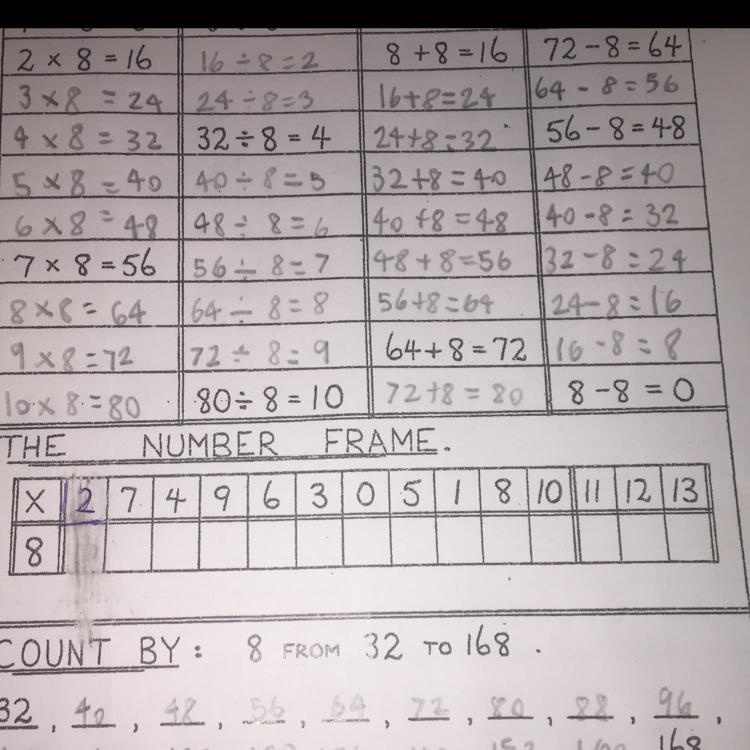 2 × 8 = 16 16 ÷ 8 = 2 8 + 8 = 16 72 - 8 = 64
3 × 8 = 24 24 ÷ 8 = 3 16 + 8 = 24 64 - 8 = 56
4 × 8 = 32 32 ÷ 8 = 4 24 + 8 = 32 56 - 8 = 48
5 × 8 = 40 40 ÷ 8 = 5 32 + 8 = 40 48 - 8 = 40
6 × 8 = 48 48 ÷ 8 = 6 40 + 8 = 48 40 - 8 = 32
7 × 8 = 56 56 ÷ 8 = 7 48 + 8 = 56 32 - 8 = 24
8 × 8 = 64 64 ÷ 8 = 8 56 + 8 = 64 24 - 8 = 16
9 × 8 = 72 72 ÷ 8 = 9 64 + 8 = 72 16 - 8 = 8
10 × 8 = 80 80 ÷ 8 = 10 72 + 8 = 80 8 - 8 = 0
THE NUMBER FRAME.
X 2 7 4 9 6 3 0 5 1 8 10 11 12 13
8
COUNT BY: 8 FROM 32 TO 168.
32, 40, 48, 56, 64, 72, 80, 88, 96,
168